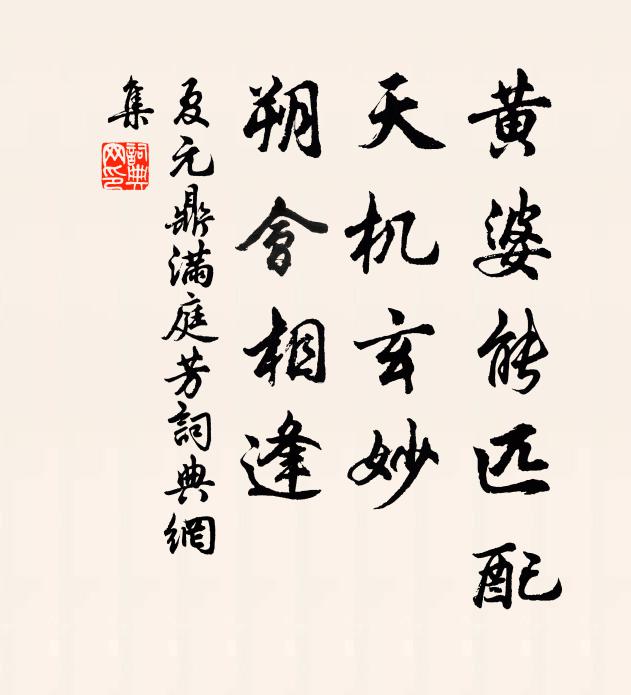 黄婆能匹配
天机玄妙
朔會相逢
夏元鼎满庭芳詞典網
集
詞典網印